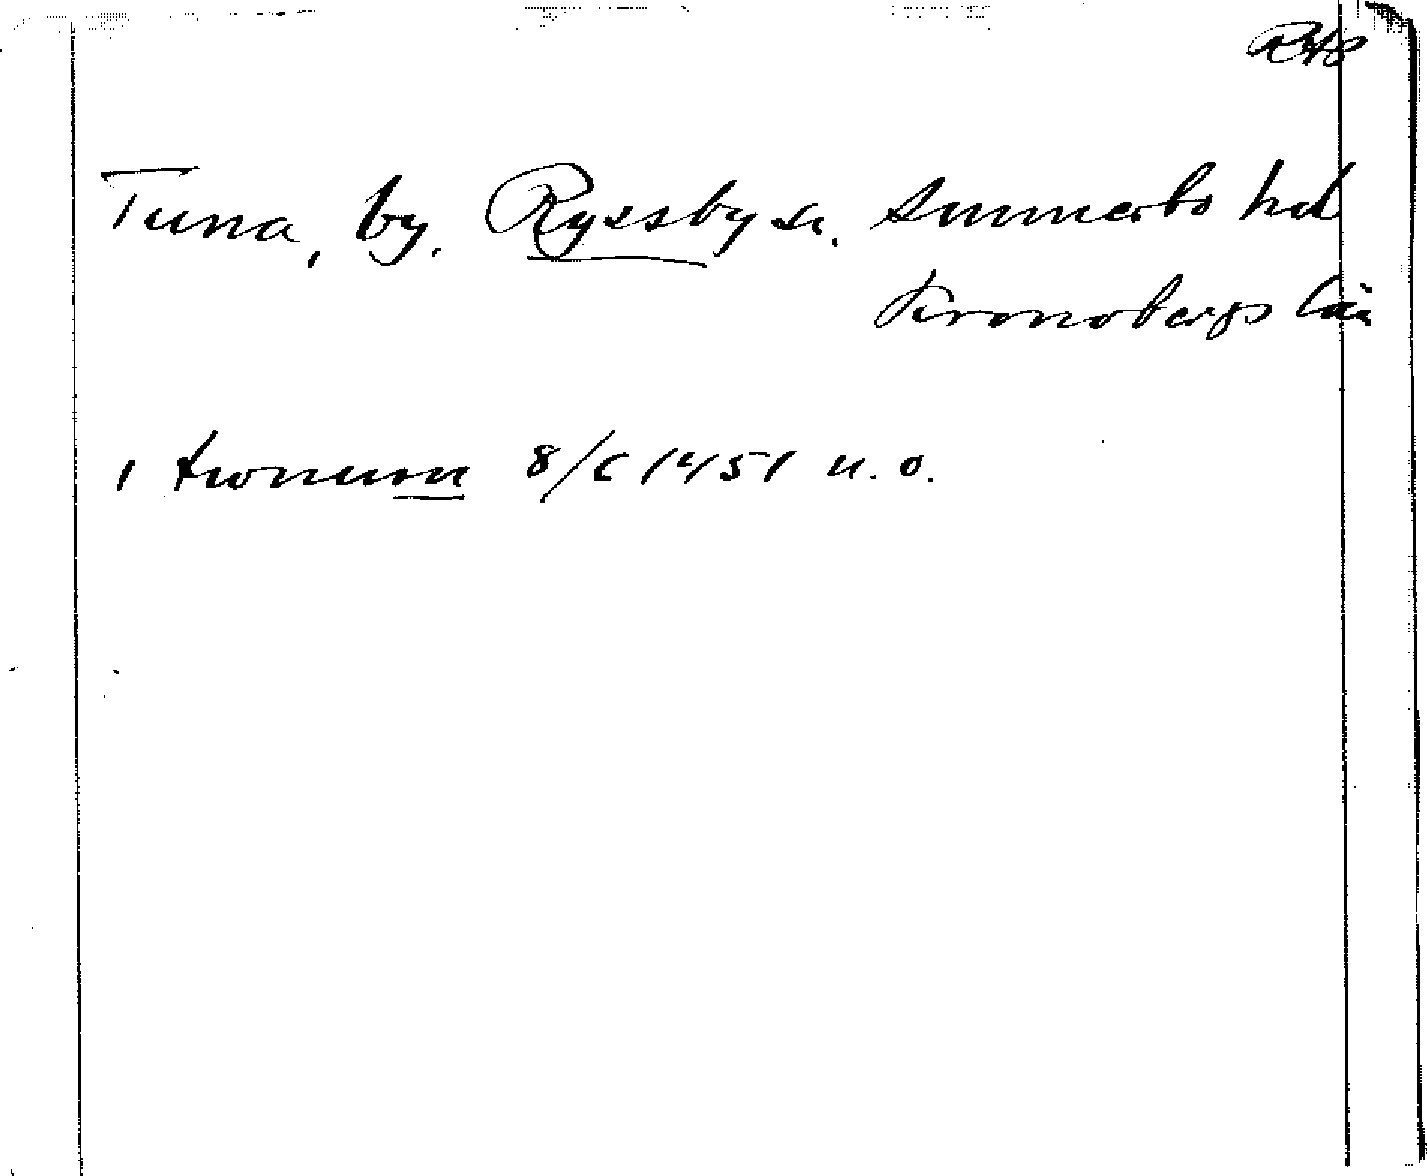 Tuna, by. Ryssby sn. Sunnerbo hd
Kronobergs län
8/6 1451 u. o.